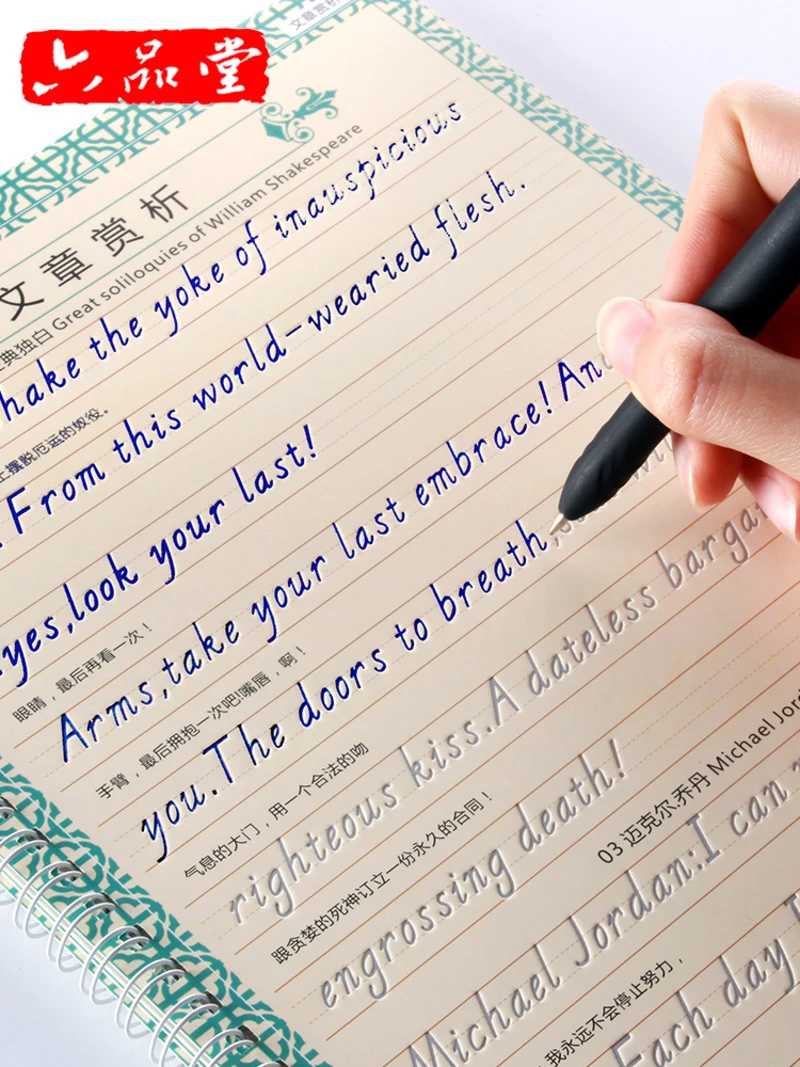 六品堂
文章赏析
文章赏析
典独白 Great soliloquies of William Shakespeare
hake the yoke of inauspicious
上摆脱厄运的奴役。
From this world-wearied flesh.
yes,look your last!
眼睛，最后再看一次！
Arms,take your last embrace!An
手臂，最后拥抱一次吧!嘴唇，啊！
you.The doors to breath,
气息的大门，用一个合法的吻
righteous kiss.A dateless barga
跟贪婪的死神订立一份永久的合同！
engrossing death!
03 迈克尔.乔丹 Michael Jord
Michael Jordan:I can
我永远不会停止努力，
Each day I